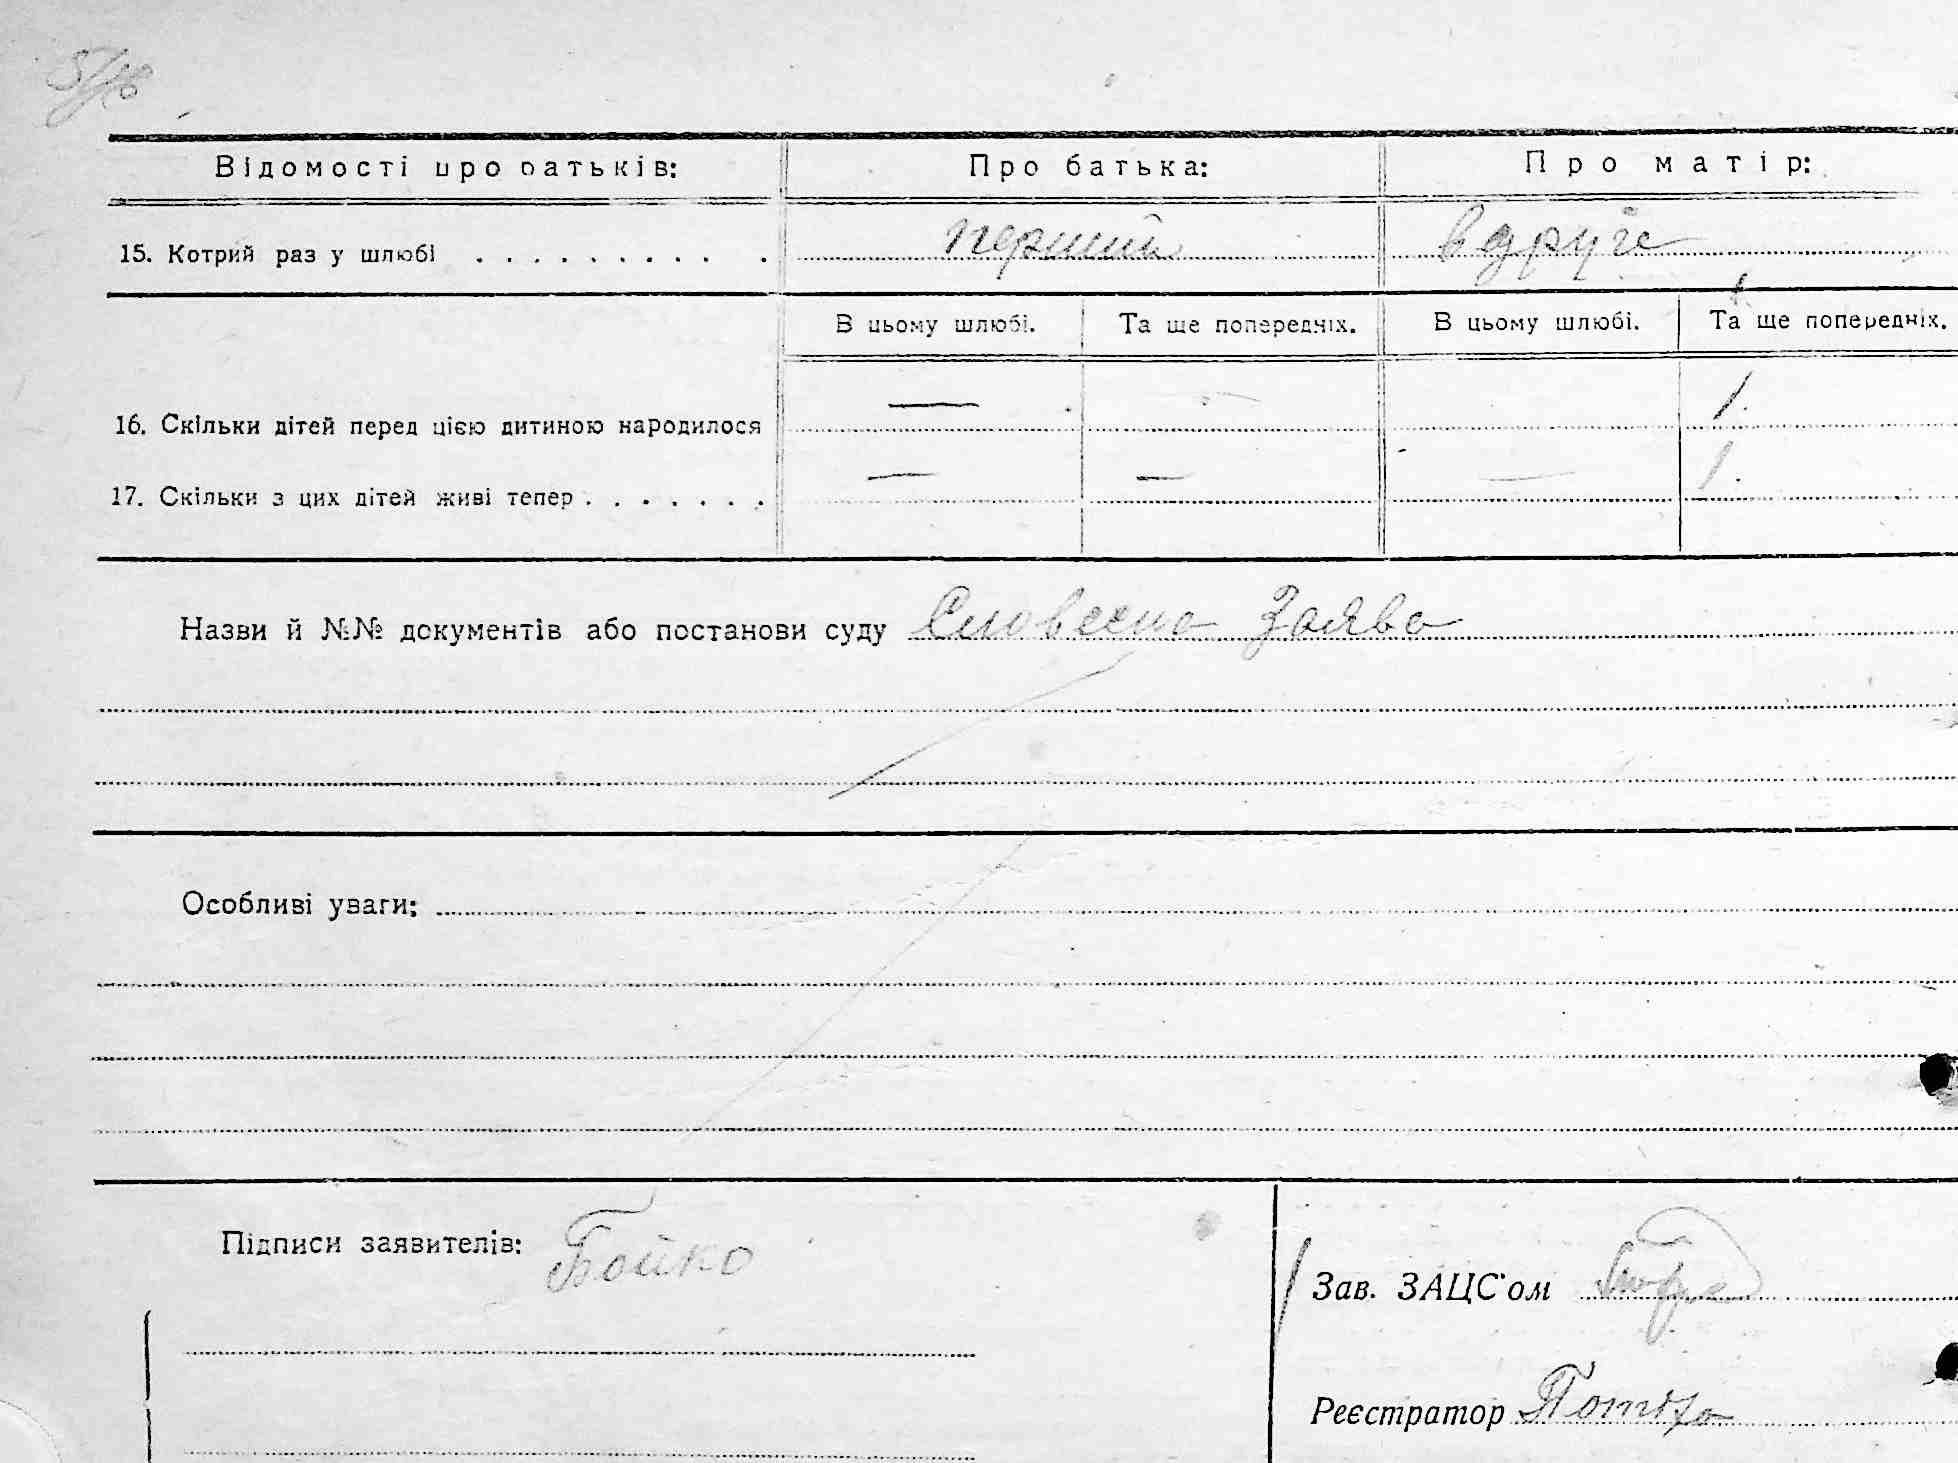 Відомості про батьків: Про батька: Про матір:
15. Котрий раз у шлюбі . . . . . . . . . . перший вдруге
В цьому шлюбі. Та ще попередніх. В цьому шлюбі. Та ще попередніх.
16. Скільки дітей перед цією дитиною народилося — - 1.
17. Скільки з цих дітей живі тепер . . . . . . . — — — 1.
Назви й №№ документів або постанови суду Словесна Заява
Особливі уваги:
Підписи заявителів: Бойко
Зав. ЗАЦС'ом
Реєстратор